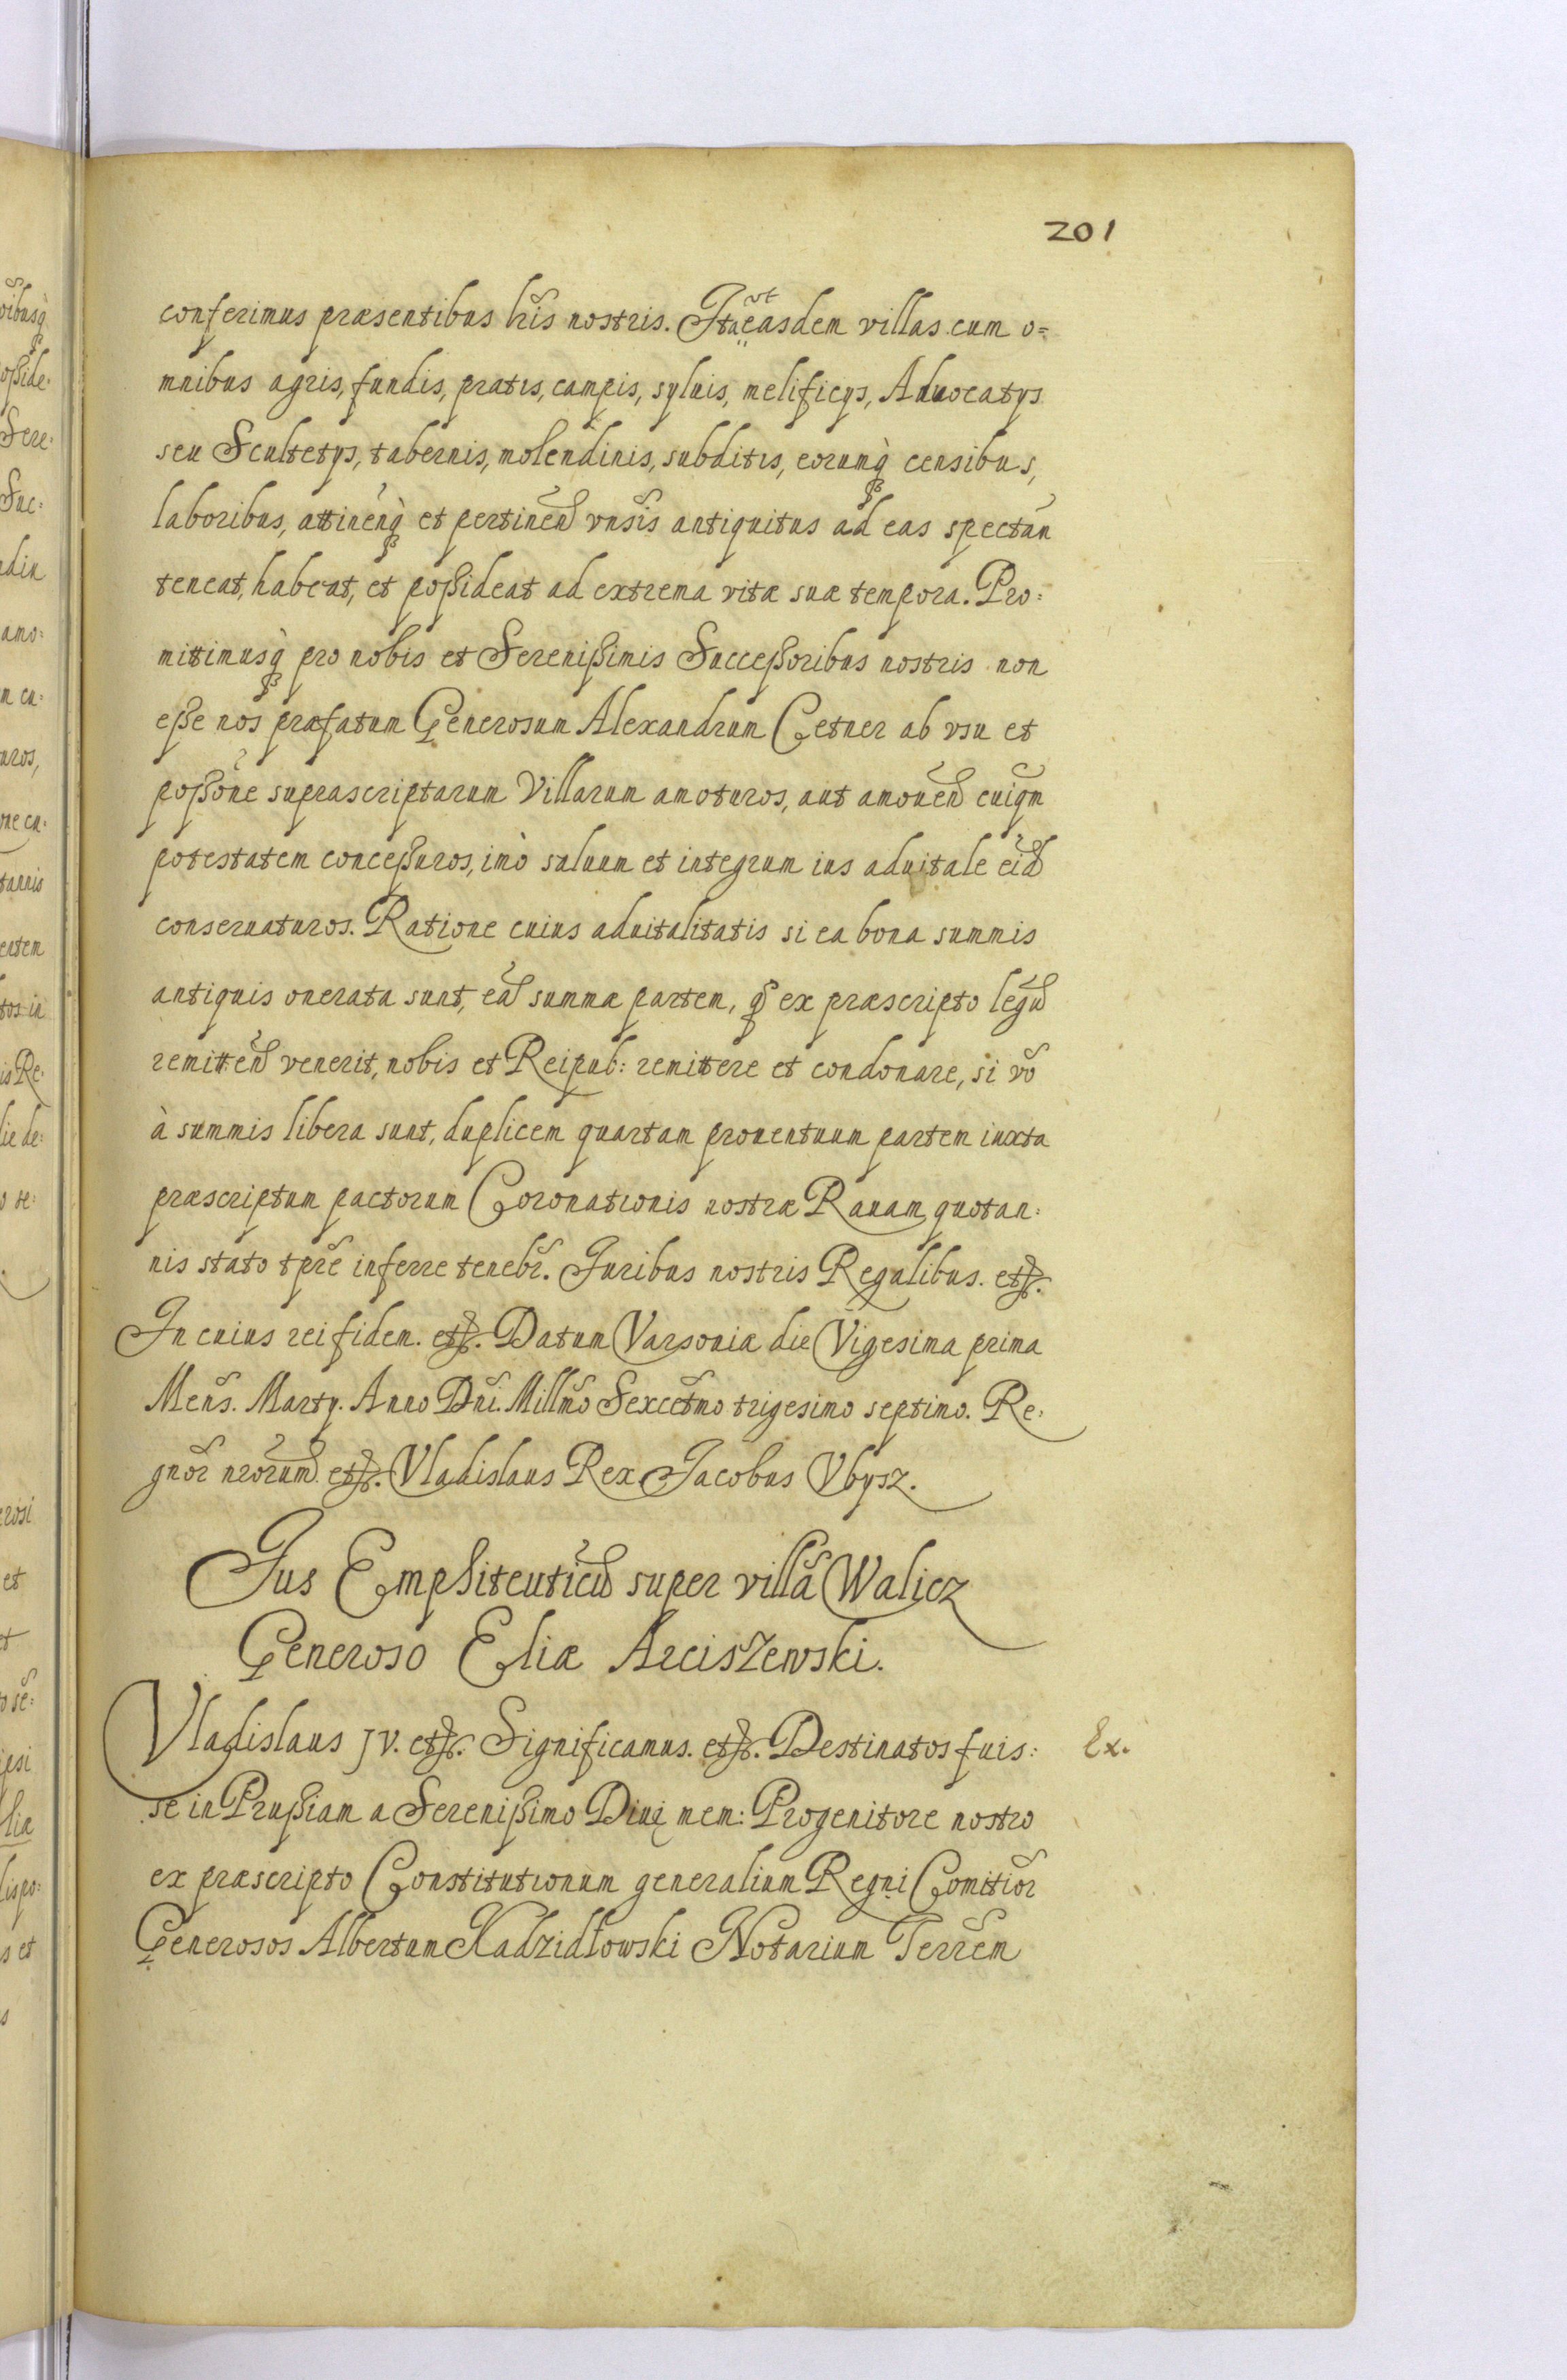 201
conferimus præsentibus lr̃is nostris. Ita ut easdem villas cum o=
mnibus agris, fundis, pratis, campis, syluis, melificijs, Aduocatijs
seu Scultetijs, tabernis, molendinis, subditis, eorumq̀ censibus,
laboribus, attinen̄q̀ et pertinen̄ vnĩsis antiquitus ad eas spectan̄
teneat, habeat, et poßideat ad extrema vitæ suæ tempora. Pro:
mittimusq̀ pro nobis et Serenißimis Succeßoribus nostris non
eße nos præfatum Generosum Alexandrum Cetner ab vsu et
poßone suprascriptarum Villarum amoturos, aut amouen̄ cuiqm̃
potestatem conceßuros, imò saluum et integrum ius aduitale eid̃
conseruaturos. Ratione cuius aduitalitatis si ea bona summis
antiquis onerata sunt, ead̃ summæ partem, q̃ ex præscripto legũ
remitten̄ venerit, nobis et Reipub: remittere et condonare, si võ
à summis libera sunt, duplicem quartam prouentuum partem iuxta
præscriptum pactorum Coronationis nostræ Rauam quotan:
nis stato tp̃re inferre tenebr̃. Juribus nostris Regalibus. etc.
In cuius rei fidem. etc. Datum Varsouiæ die Vigesima prima
Mens̃. Martij. Anno Dñi. Millm̃o Sexcetm̃o trigesimo septimo. Re:
gnor̃ nr̃orum. etc. Vladislaus Rex Jacobus Vbysz.
Jus Emphiteuticũ super villã Walicz
Generoso Eliæ Arciszewski.
Vladislaus JV. etc. Significamus. etc. Destinatos fuis:
Ex.
se in Prußiam a Serenißimo Diuæ mem: Progenitore nostro
ex præscripto Constitutionum generalium Regni Comitior̃
Generosos Albertum Kadzidłowski Notarium Terrem̃